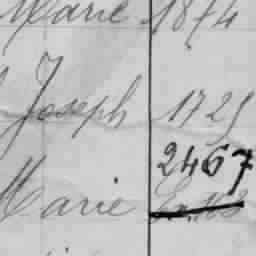 Marie 1874
Joseph 1725
2467
Marie